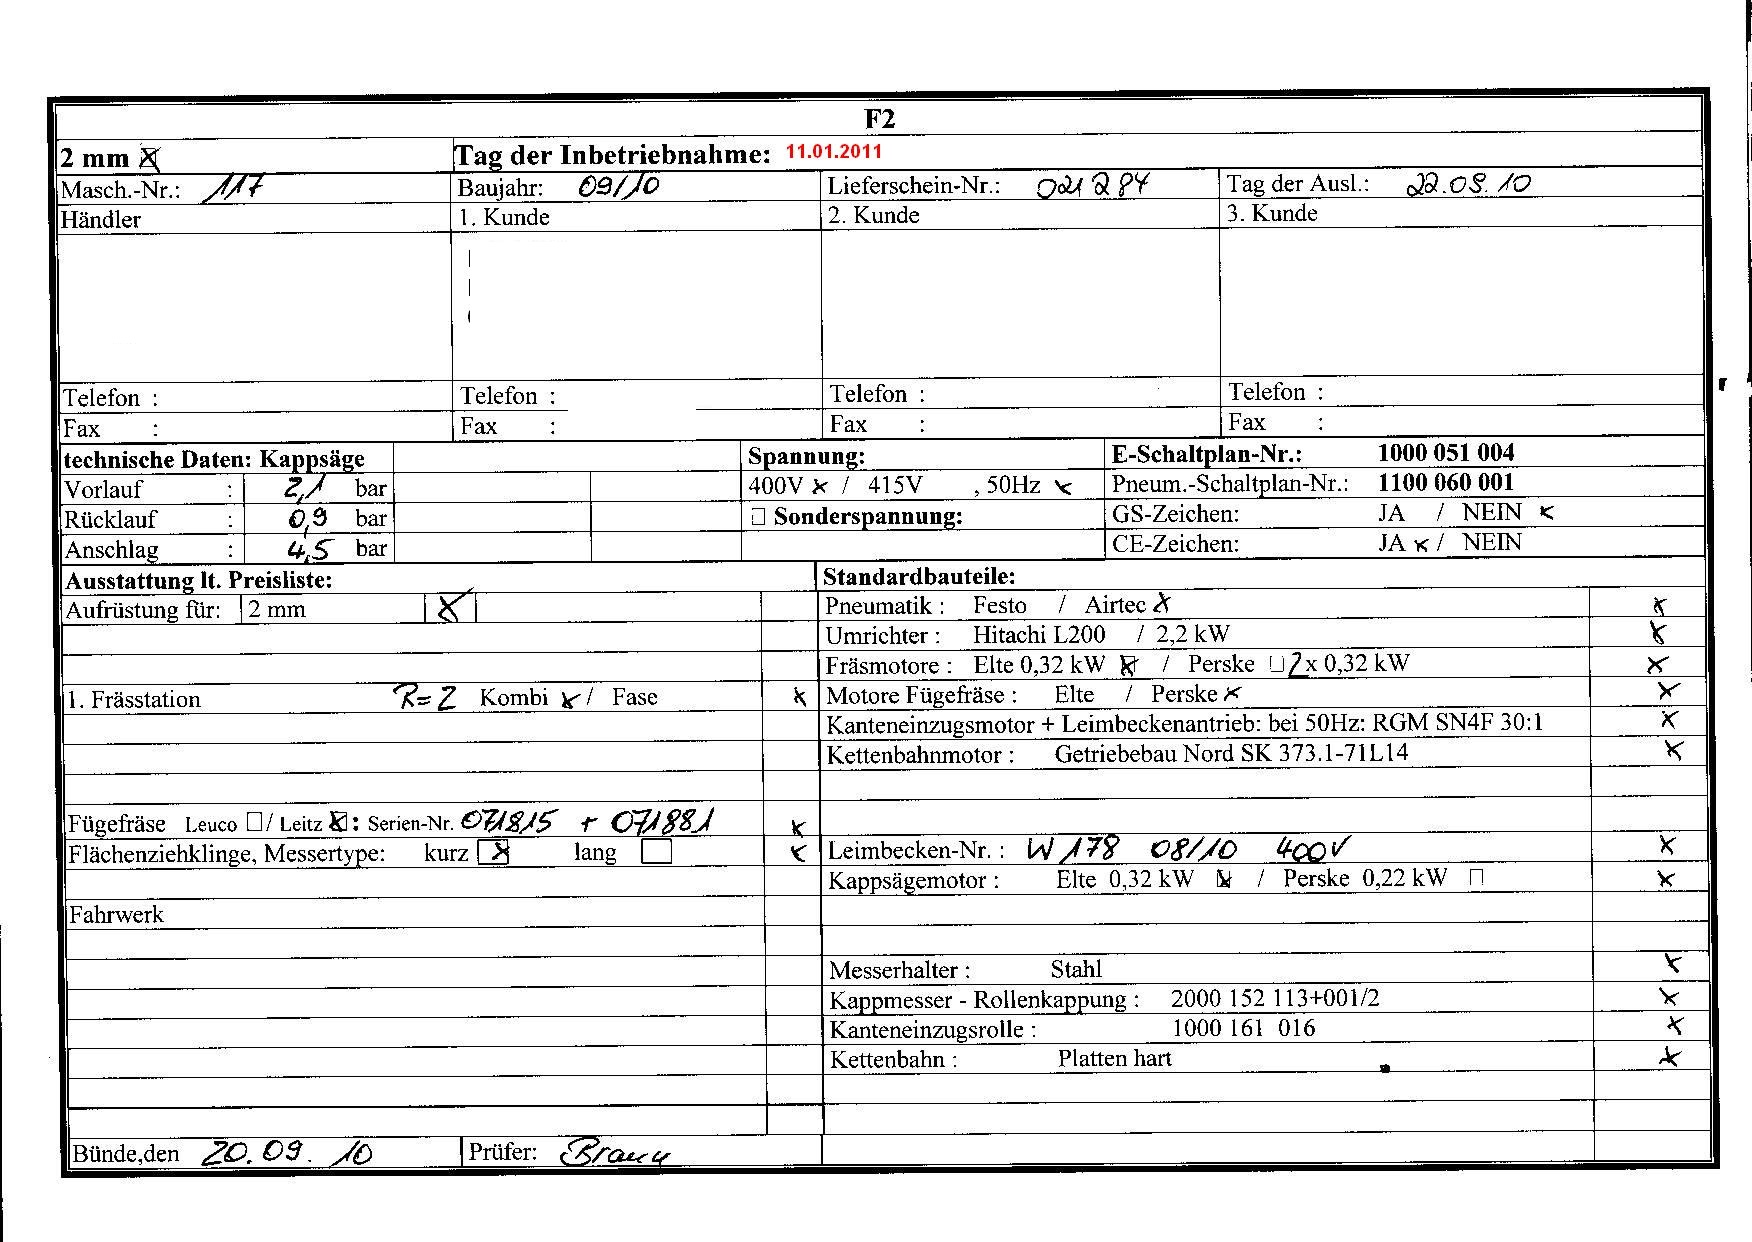 F2
2 mm Tag der Inbetriebnahme: 11.01.2011
Masch.-Nr.: 117 Baujahr: 09/10 Lieferschein-Nr.: 021284 Tag der Ausl.: 22.09.10
Händler 1. Kunde 2. Kunde 3. Kunde
Telefon : Telefon : Telefon : Telefon :
Fax : Fax : Fax : Fax :
technische Daten: Kappsäge Spannung: E-Schaltplan-Nr.: 1000 051 004
Vorlauf : 2,1 bar 400V x / 415V , 50Hz x Pneum.-Schaltplan-Nr.: 1100 060 001
Rücklauf : 0,9 bar Sonderspannung: GS-Zeichen: JA / NEIN x
Anschlag : 4,5 bar CE-Zeichen: JA x / NEIN
Ausstattung lt. Preisliste: Standardbauteile:
Aufrüstung für: 2 mm x Pneumatik : Festo / Airtec x x
Umrichter : Hitachi L200 / 2,2 kW x
Fräsmotore : Elte 0,32 kW x / Perske 2 x 0,32 kW x
1. Frässtation R=2 Kombi x / Fase x Motore Fügefräse : Elte / Perske x x
Kanteneinzugsmotor + Leimbeckenantrieb: bei 50Hz: RGM SN4F 30:1 x
Kettenbahnmotor : Getriebebau Nord SK 373.1-71L14 x
Fügefräse Leuco / Leitz x : Serien-Nr. 071815 + 071881 x
Flächenziehklinge, Messertype: kurz x lang x Leimbecken-Nr. : W178 08/10 400V x
Kappsägemotor : Elte 0,32 kW x / Perske 0,22 kW x
Fahrwerk
Messerhalter : Stahl x
Kappmesser - Rollenkappung : 2000 152 113+001/2 x
Kanteneinzugsrolle : 1000 161 016 x
Kettenbahn : Platten hart x
Bünde,den 20.09.10 Prüfer: Braun